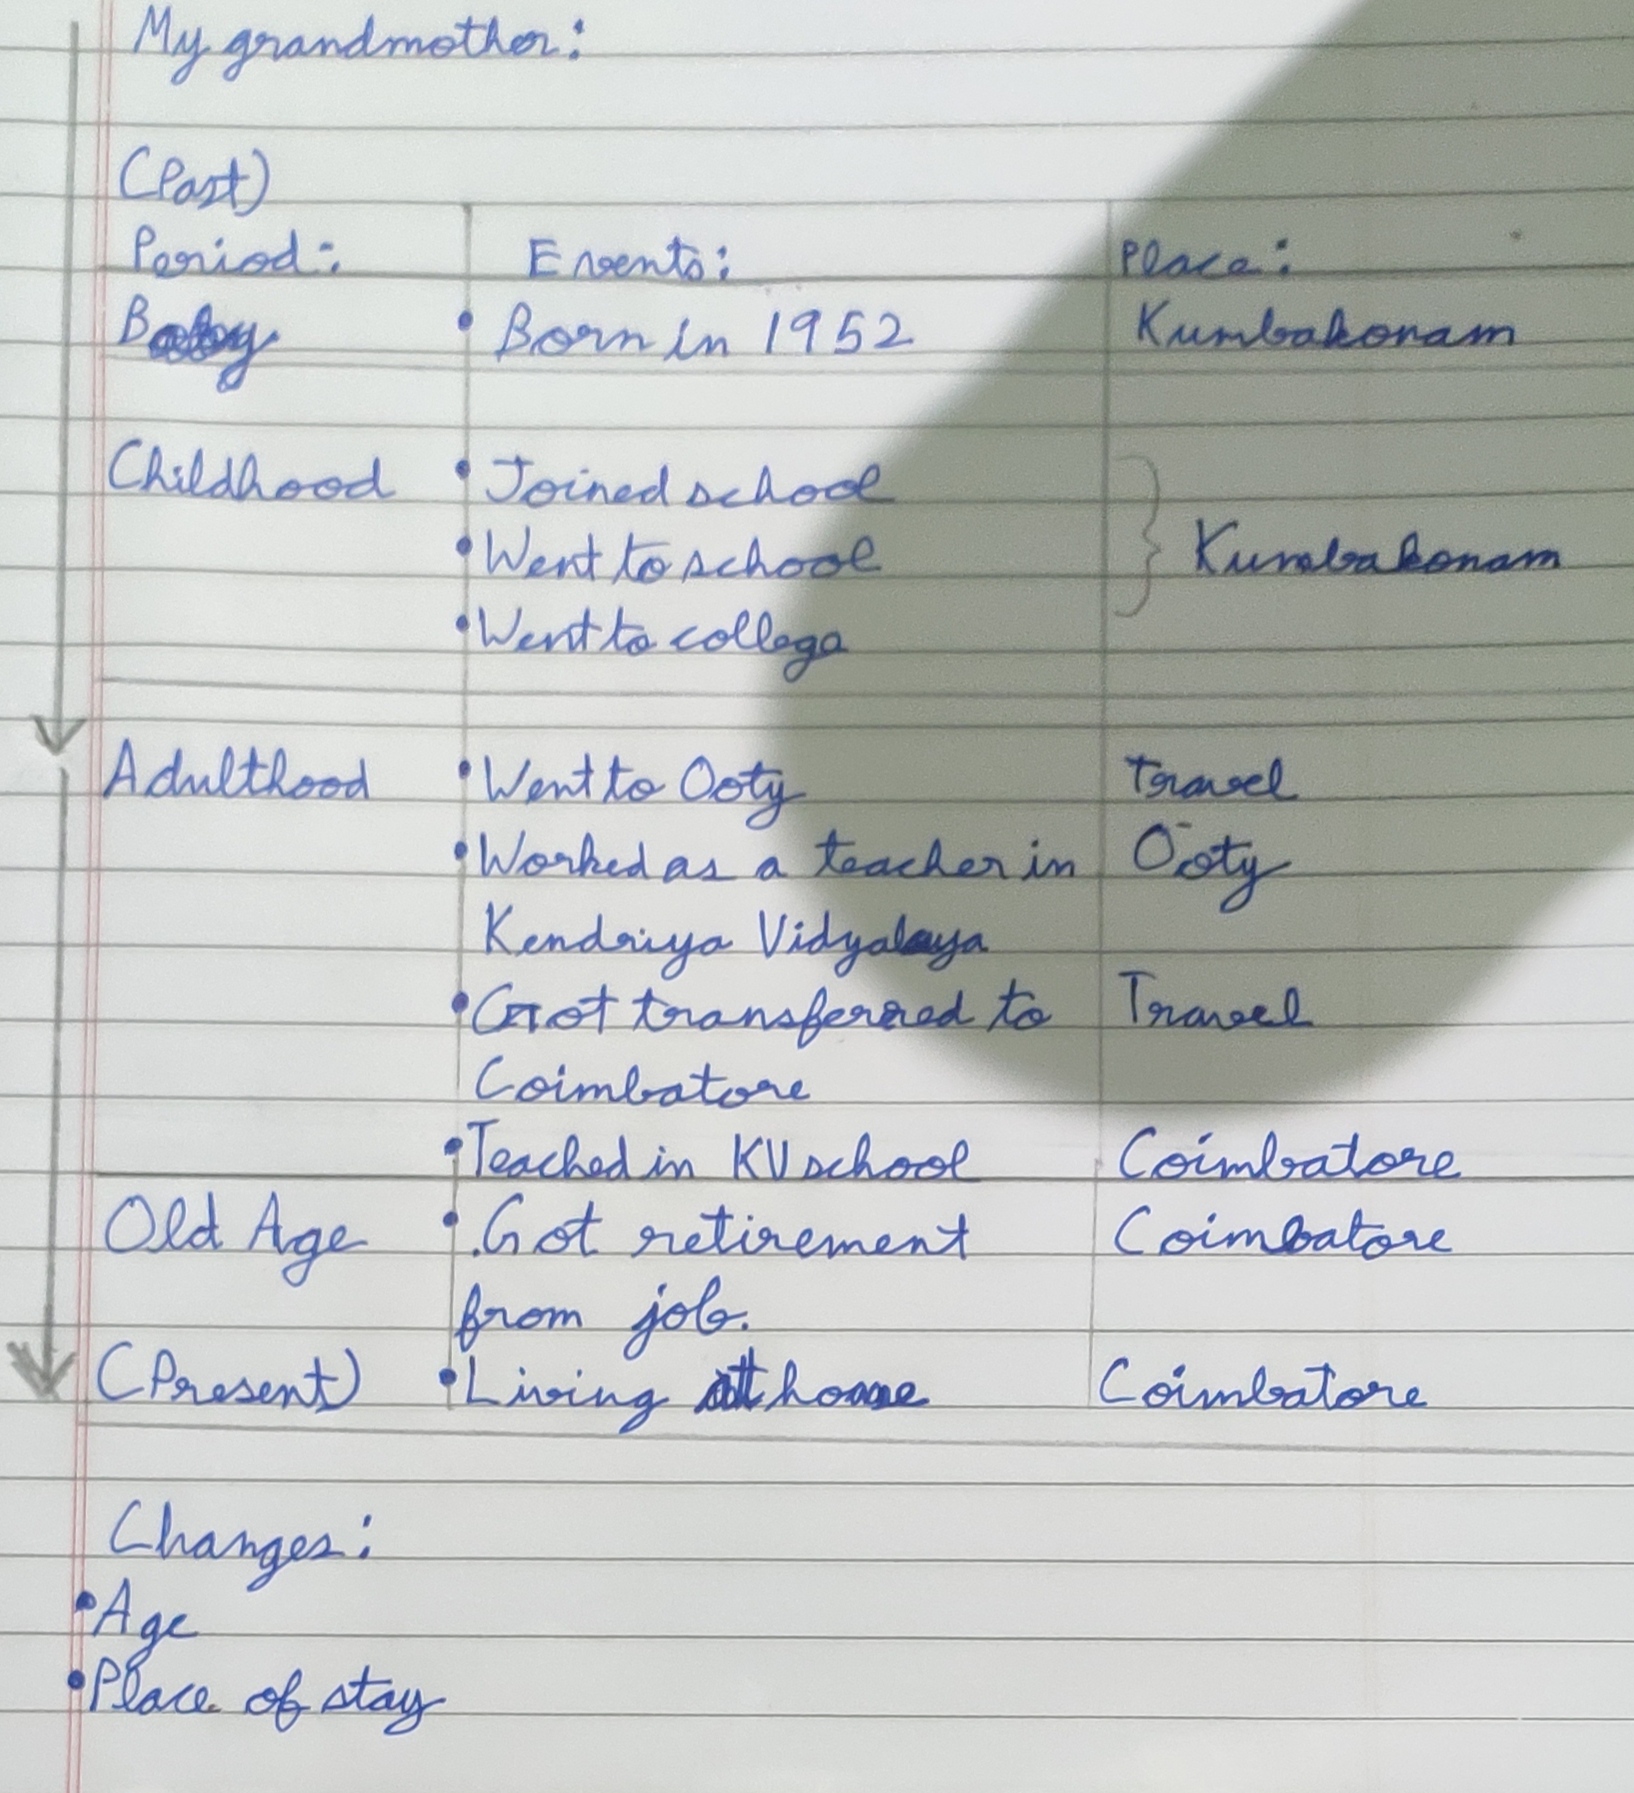 My grandmother:
(Past)
Period: Events: Place:
Baby • Born in 1952 Kumbakonam
Childhood • Joined school
• Went to school Kumbakonam
• Went to college
Adulthood • Went to Ooty Travel
• Worked as a teacher in Ooty
Kendriya Vidyalaya
• Got transferred to Travel
Coimbatore
• Teached in KV school Coimbatore
Old Age • Got retirement Coimbatore
from job.
(Present) • Living at home Coimbatore
Changes:
• Age
• Place of stay